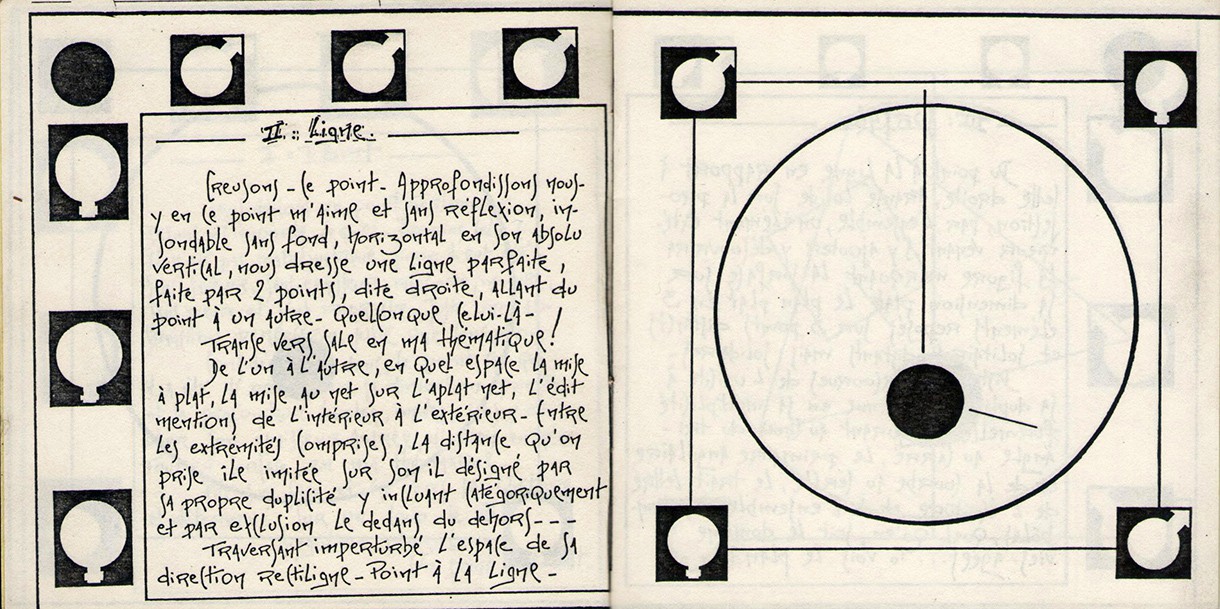 II. : Ligne.
Creusons - ce point - Approfondissons nous-
y en ce point m'aime et sans réflexion, in-
sondable sans fond, horizontal en son absolu
vertical, nous dresse une Ligne parfaite,
faite par 2 points, dite droite, allant du
point à un autre - Quelconque celui-là -
Transe vers sale en ma thématique !
De l'un à l'autre, en quel espace la mise
à plat, la mise au net sur l'aplat net, l'édit
mentions de l'intérieur à l'extérieur - Entre
les extrémités comprises, la distance, qu'on
prise île imitée sur son il désigne par
sa propre duplicité y incluant catégoriquement
et par exclusion le dedans du dehors - - -
Traversant imperturbé l'espace de sa
direction rectiligne - Point à la Ligne -